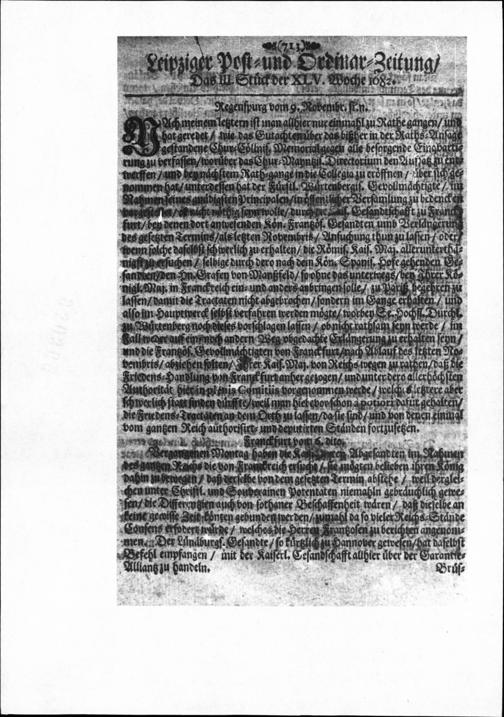 (713)
Leipziger Post- und Ordinar-Zeitung/
Das III. Stück der XLV. Woche 1682.
Regenspurg vom 9. Novembr. st. n.
NAch meinem letztern ist man allhier nur einmahl zu Rathe gangen/ und
hat geredet/ wie das Gutachten über das bißher in der Raths-Ansage
gestandene Chur-Cöllnis. Memorial gegen alle besorgende Einquartie-
rung zu verfassen/ worüber das Chur-Mayntzis. Directorium den Auffsatz zu ent-
werffen/ und bey nächstem Rath-gange in die Collegia zu eröffnen/ über sich ge-
nommen hat/ unterdessen hat der Fürstl. Würtenbergis. Gevollmächtigte/ im
Nahmen seines gnädigsten Principalen/ in öffentlicher Versamlung zu bedencken
ob nicht nöthig seyn wolle/ durch Gesandtschafft zu Franck-
furt/ bey denen dort anwesenden Kön. Frantzös. Gesandten umb Verlängerung
des gesetzten Termins/ als letzten Novembris/ Ansuchung thun zu lassen/ oder/
wenn solche daselbst schwerlich zu erhalten/ die Römis. Käis. Maj. allerunterthä-
nigst zu ersuchen/ selbige durch dero nach den Kön. Spanis. Hofe gehenden Ge-
sandten/ den Hn. Grafen von Mansfeld/ so ohne das unterwegs/ bey Ihrer Kö-
nigl. Maj. in Franckreich ein- und anders anbringen solle/ zu Pariß begehren zu
lassen/ damit die Tractaten nicht abgebrochen/ sondern im Gange erhalten/ und
also im Hauptwerck selbst verfahren werden möge/ worbey Se. Hochfl. Durchl.
zu Würtenberg noch dieses vorschlagen lassen/ ob nicht rathsam seyn werde/ im
Fall weder auf ein- noch andern Weg obgedachte Erlängerung zu erhalten seyn/
und die Frantzös. Gevollmächtigten von Franckfurt/ nach Ablauf des letzten No-
vembris/ abziehen solten/ Ihrer Käis. Maj. von Reichs wegen zu rathen/ daß die
Friedens-Handlung von Franckfurt anher gezogen/ und unter dero allerhöchsten
Authorität hier in plenis Comitiis vorgenommen werde/ welch letztere aber
schwerlich statt finden dürffte/ weil man hier ehe schon à potiori dafür gehalten/
die Friedens-Tractaten an dem Orth zu lassen/ da sie sind/ und von denen einmal
vom gantzen Reich authorisirt- und deputirten Ständen fortzusetzen.
Franckfurt vom 6. dito.
Vergangenen Montag haben die Käis. Herren Abgesandten im Nahmen
des gantzen Reichs die von Franckreich ersucht/ sie möchten belieben ihren König
dahin zu bewegen/ daß derselbe von dem gesetzten Termin abstehe/ weil derglei-
chen unter Christl. und Souverainen Potentaten niemahln gebräuchlich gewe-
sen/ die Differentzien auch von sothaner Beschaffenheit wären/ daß dieselbe an
keine gewisse Zeit könten gebunden werden/ zumahl da so vieler Reichs-Stände
Consens erfodert würde/ welches die Herren Frantzosen zu berichten angenom-
men. Der Lüneburgs. Gesandte/ so kürtzlich zu Hannover gewesen/ hat daselbst
Befehl empfangen/ mit der Käiserl. Gesandschafft allhier über der Garantie-
Alliantz zu handeln.
Brüs-